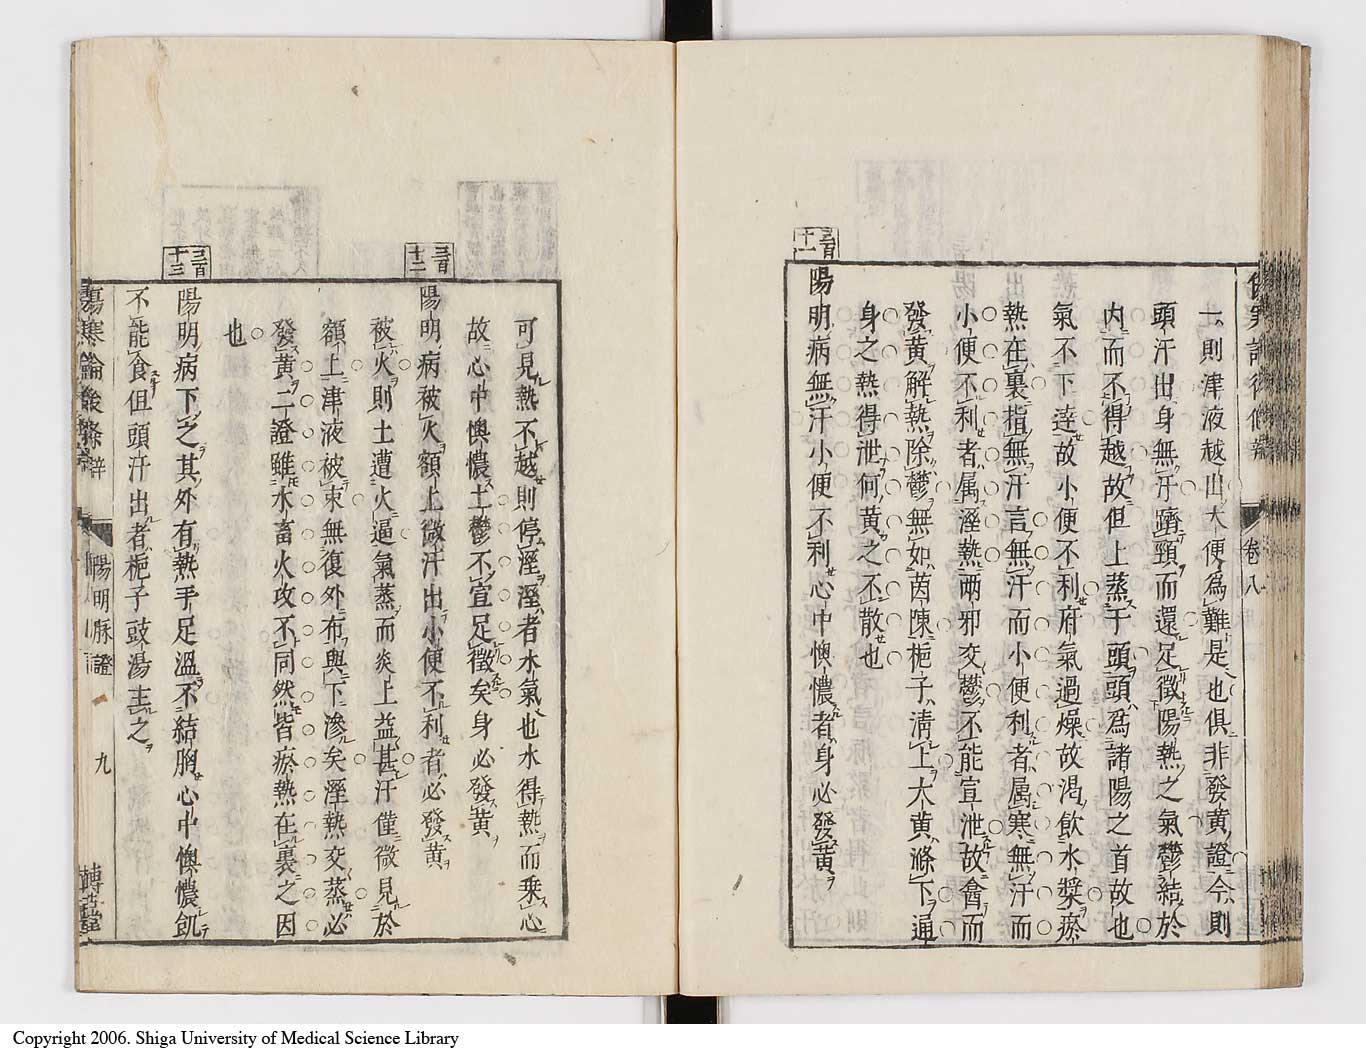 卷八
一則津液越出大便爲難是也俱非發黄證今則
頭汗出身無汗躋頸而還足徵陽熱之氣鬱結於
内而不得越故但上蒸于頭頭爲諸陽之首故也
氣不下達故小便不利府氣過燥故渇飲水漿瘀
熱在裏指無汗言無汗而小便利者属寒無汗而
小便不利者属溼熱兩邪交鬱不能宣泄故會而
發黄解熱除鬱無如茵陳梔子清上大黄滌下通
身之熱得泄何黄之不散也
三百十一
陽明病無汗小便不利心中懊憹者身必發黄
可見熱不越則停溼溼者水氣也水得熱而乘心
故心中懊憹土鬱不宣足徵矣身必發黄
三百十二
陽明病被火額上微汗出小便不利者必發黄
被火則土遭火逼氣蒸而炎上益甚汗僅微見於
額上津液被束無復外布與下滲矣溼熱交蒸必
發黄二證雖水畜火攻不同然皆瘀熱在裏之因
也
三百十三
陽明病下之其外有熱手足温不結胸心中懊憹飢
不能食但頭汗出者梔子豉湯主之
傷寒論後條辨
陽明脉證
九
Copyright 2006. Shiga University of Medical Science Library